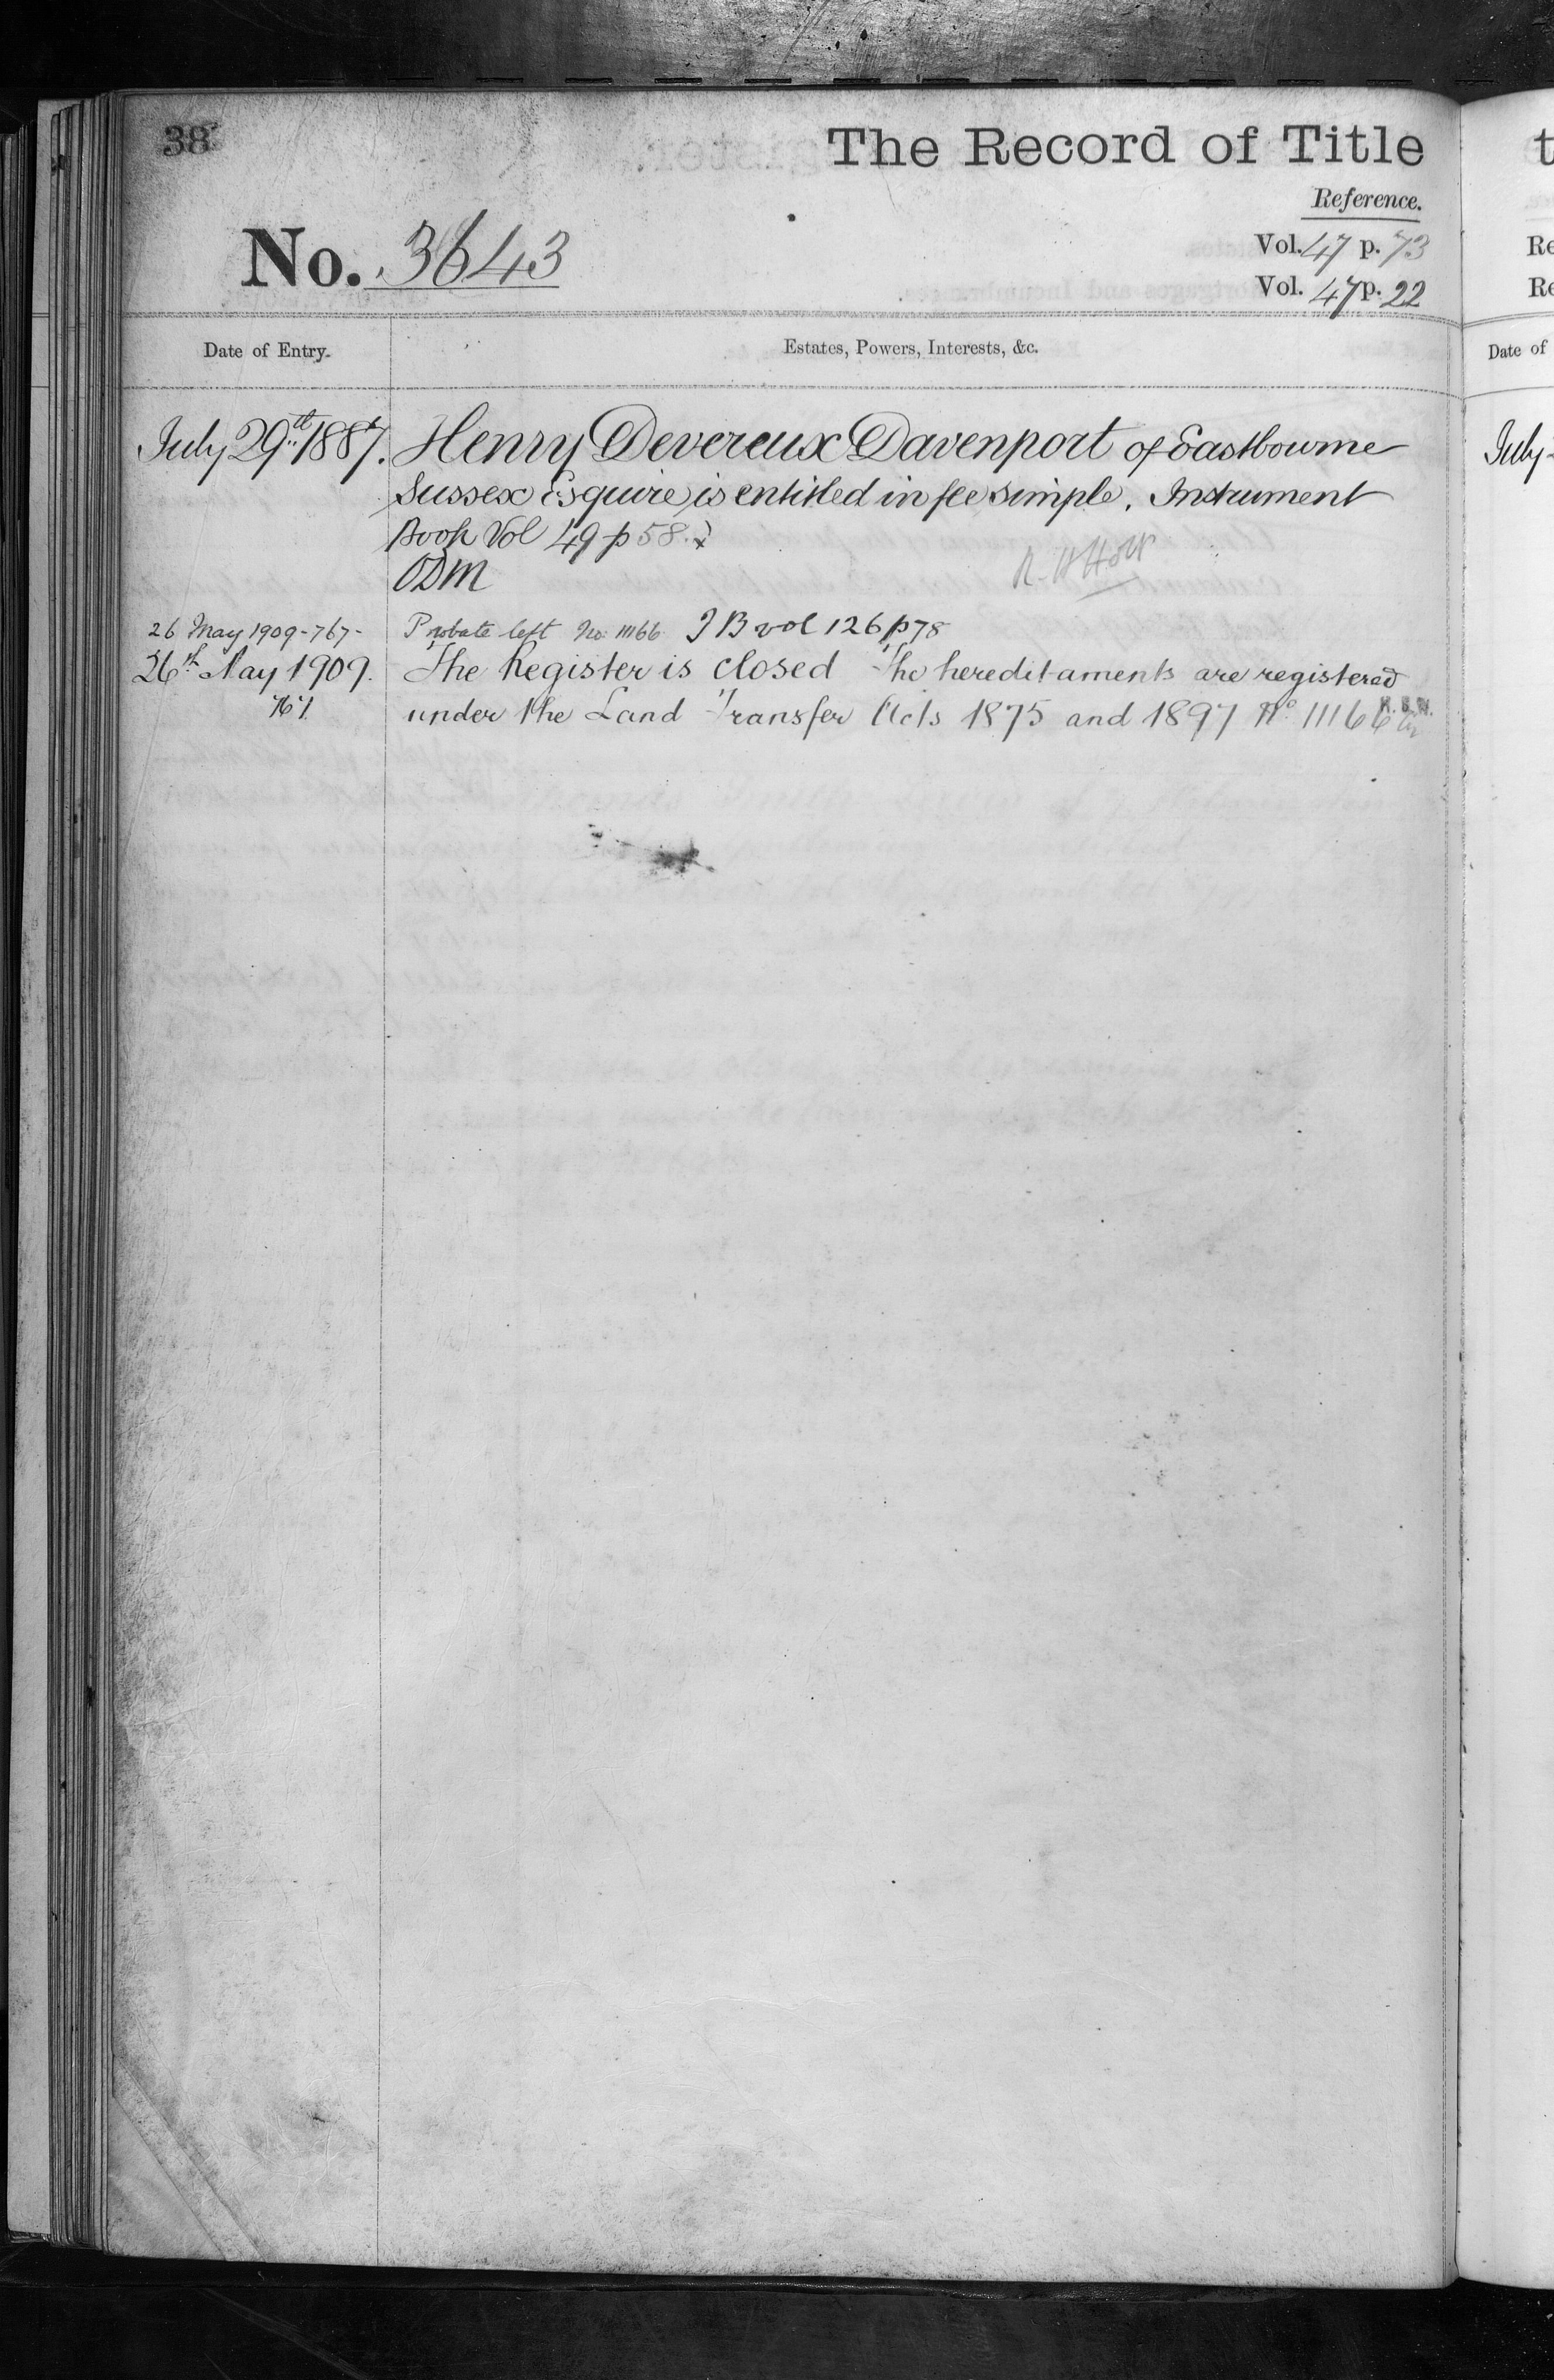 38
The Record of Title
Reference.
No. 3643
Vol. 47 p. 73
Vol. 47 p. 22
Date of Entry.
Estates, Powers, Interests, &c.
July 29th 1887. Henry Devereux Davenport of Eastbourne
Sussex Esquire, is entitled in fee simple. Instrument
Book Vol 49 p 58.
ODM
26 May 1909 - 767 - Probate left No. 11166 I B vol 126 p 78
26th May 1909. The Register is closed The hereditaments are registered
767 under the Land Transfer Acts 1875 and 1897 No. 11166
t
Re
Re
Date of
July